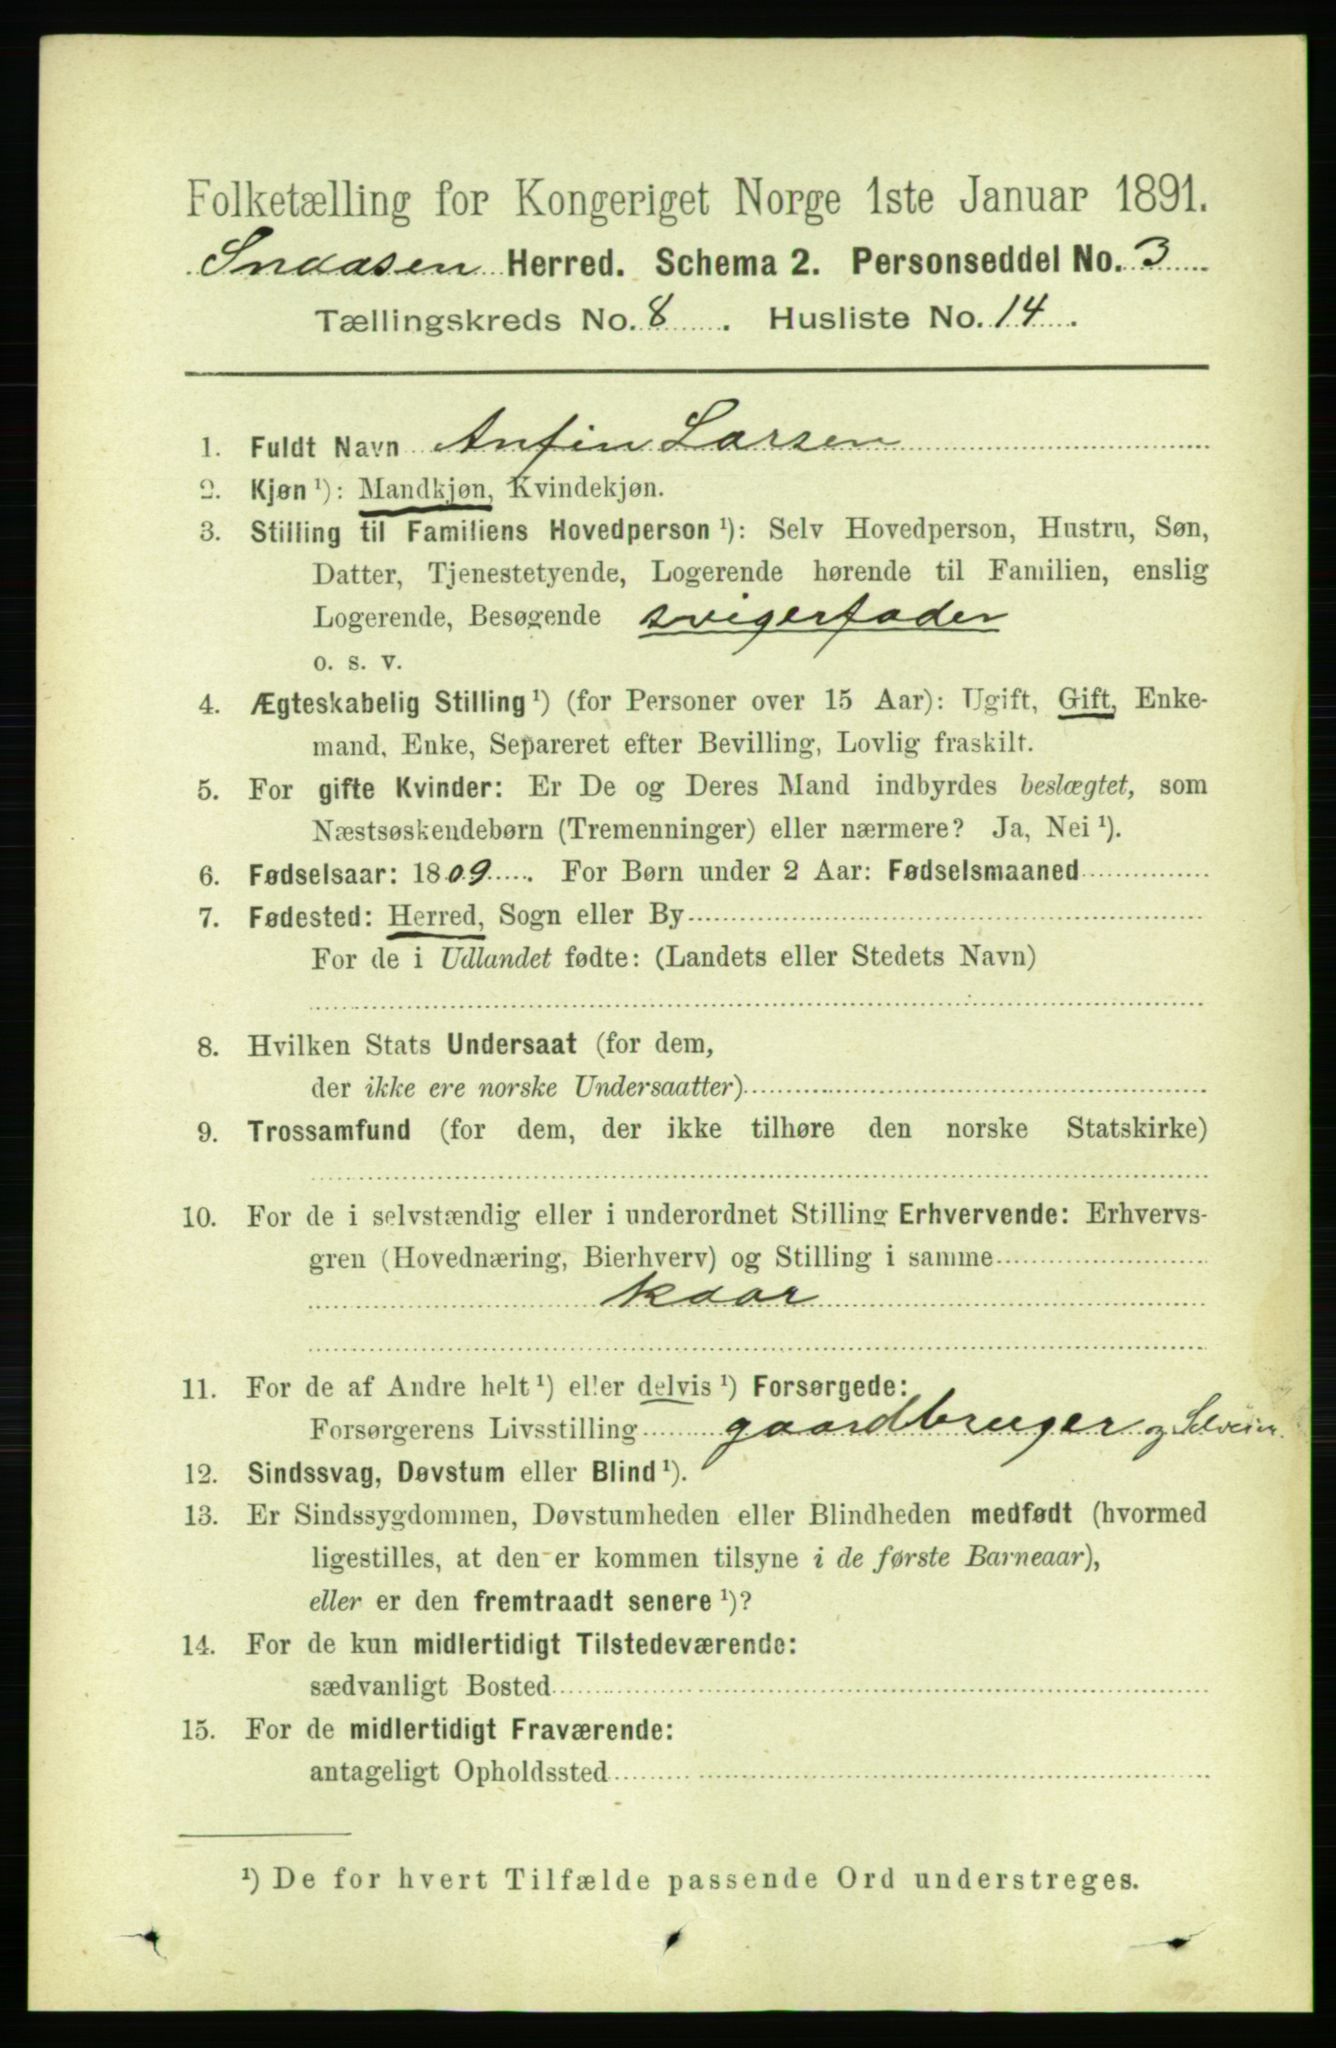 Folketælling for Kongeriget Norge 1ste Januar 1891.
Snaasen Herred. Schema 2. Personseddel No. 3
Tællingskreds No. 8. Husliste No. 14.
1. Fuldt Navn Anfin Larsen
2. Kjøn ¹): Mandkjøn, Kvindekjøn.
3. Stilling til Familiens Hovedperson ¹): Selv Hovedperson, Hustru, Søn,
Datter, Tjenestetyende, Logerende hørende til Familien, enslig
Logerende, Besøgende svigerfader
o. s. v.
4. Ægteskabelig Stilling ¹) (for Personer over 15 Aar): Ugift, Gift, Enke-
mand, Enke, Separeret efter Bevilling, Lovlig fraskilt.
5. For gifte Kvinder: Er De og Deres Mand indbyrdes beslægtet, som
Næstsøskendebørn (Tremenninger) eller nærmere? Ja, Nei ¹).
6. Fødselsaar: 1809. For Børn under 2 Aar: Fødselsmaaned
7. Fødested: Herred, Sogn eller By
For de i Udlandet fødte: (Landets eller Stedets Navn)
8. Hvilken Stats Undersaat (for dem,
der ikke ere norske Undersaatter)
9. Trossamfund (for dem, der ikke tilhøre den norske Statskirke)
10. For de i selvstændig eller i underordnet Stilling Erhvervende: Erhvervs-
gren (Hovednæring, Bierhverv) og Stilling i samme
kaar
11. For de af Andre helt ¹) eller delvis ¹) Forsørgede:
Forsørgerens Livsstilling gaardbruger og Selveier
12. Sindssvag, Døvstum eller Blind ¹).
13. Er Sindssygdommen, Døvstumheden eller Blindheden medfødt (hvormed
ligestilles, at den er kommen tilsyne i de første Barneaar),
eller er den fremtraadt senere ¹)?
14. For de kun midlertidigt Tilstedeværende:
sædvanligt Bosted
15. For de midlertidigt Fraværende:
antageligt Opholdssted
¹) De for hvert Tilfælde passende Ord understreges.